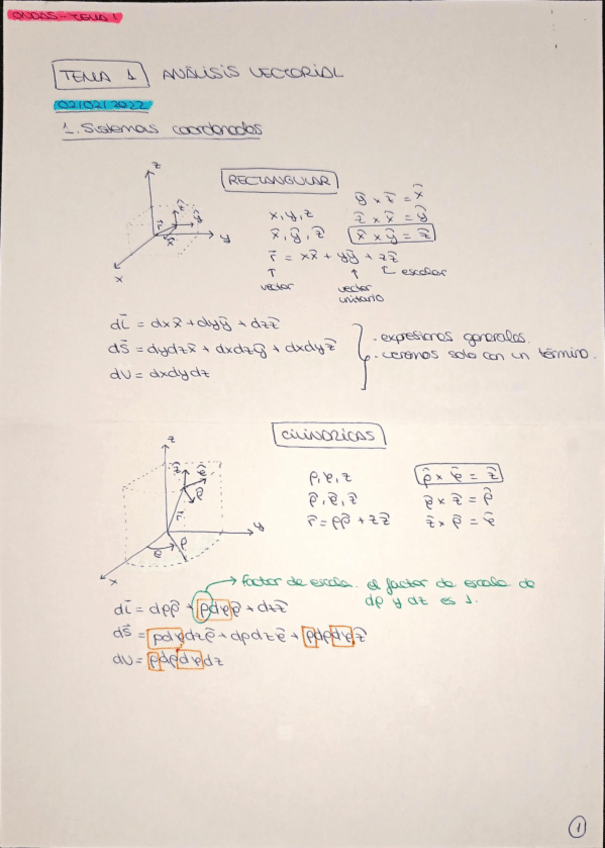 ONDAS - TEMA 1
TEMA 1 ANÁLISIS VECTORIAL
02/02/2022
1. Sistemas coordenados
RECTANGULAR
z
y
x
r̄
x̂
ŷ
ẑ
x, y, z
x̂, ŷ, ẑ
r̄ = xx̂ + yŷ + zẑ
ŷ × ẑ = x̂
ẑ × x̂ = ŷ
x̂ × ŷ = ẑ
↑ vector
↑ vector unitario
escalar
dl̄ = dxx̂ + dyŷ + dzẑ
ds̄ = dydzx̂ + dxdzŷ + dxdyẑ
dv = dxdydz
· expresiones generales.
· veremos solo con un término.
CILÍNDRICAS
z
ẑ
φ̂
ρ̂
r̄
y
φ
ρ
x
ρ, φ, z
ρ̂, φ̂, ẑ
r̄ = ρρ̂ + zẑ
ρ̂ × φ̂ = ẑ
φ̂ × ẑ = ρ̂
ẑ × ρ̂ = φ̂
factor de escala. el factor de escala de
dρ y dz es 1.
dl̄ = dρρ̂ + ρdφφ̂ + dzẑ
ds̄ = ρdφdzρ̂ + dρdzφ̂ + ρdρdφẑ
dv = ρdρdφdz
1